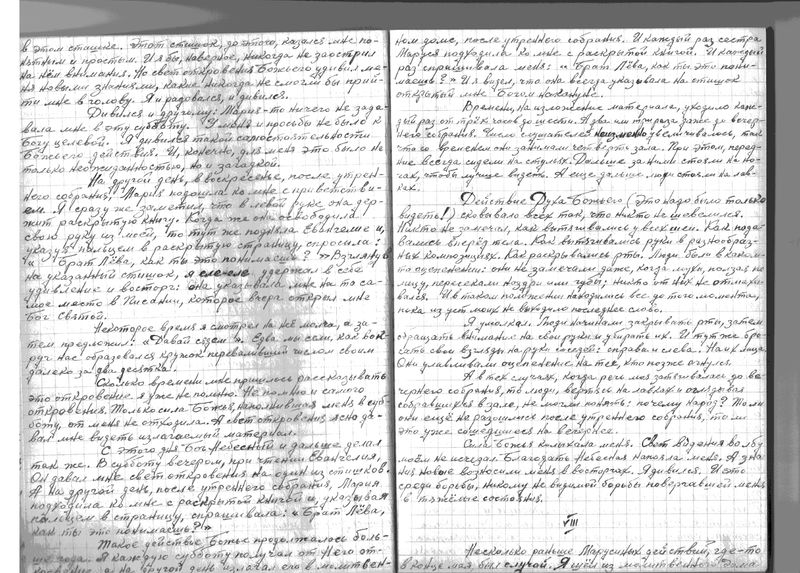 в этом стишке. Этот стишок, до этого, казался мне по-
нятным и простым. И я бы, наверное, никогда не заострил
на нём внимания. Но свет откровения Божьего удивил ме-
ня новыми знаниями, какие никогда не смогли бы прий-
ти мне в голову. Я и радовался, и дивился.
Дивился и другому: Мария-то ничего не зада-
вала мне в эту субботу. У меня и просьбы не было к
Богу целевой. Я дивился такой самостоятельности
Божьего действия. И, конечно, для меня это было не
только неожиданностью, но и загадкой.
На другой день, в воскресенье, после утрен-
него собрания, Мария подошла ко мне с приветстви-
ем. Я сразу же заметил, что в левой руке она дер-
жит раскрытую книгу. Когда же она освободила
свою руку из моей, то тут же подняла Евангелие и,
указуя пальцем в раскрытую страницу, спросила:
« Брат Лёва, как ты это понимаешь? » Взглянув
на указанный стишок, я еле-еле удержал в себе
удивление и восторг: она указывала мне на то са-
мое место в Писании, которое вчера открыл мне
Бог Святой.
Некоторое время я смотрел на неё молча, а за-
тем предложил: «Давай сядем». Едва мы сели, как вок-
руг нас образовался кружок, переваливший числом своим
далеко за два десятка.
Сколько времени мне пришлось рассказывать
это откровение, я уже не помню. Не помню и самого
откровения. Только сила Божья, наполнившая меня в суб-
боту, от меня не отходила. А свет откровения ясно да-
вал мне видеть излагаемый материал.
С этого дня Бог Небесный и дальше делал
так же. В субботу вечером, при чтении Евангелия,
Он давал мне свет откровения на один из стишков.
А на другой день, после утреннего собрания, Мария
подходила ко мне с раскрытой книгой и, указывая
пальцем в страницу, спрашивала: « Брат Лёва,
как ты это понимаешь? »
Такое действие Божье продолжалось боль-
ше года. Я каждую субботу получал от Него от-
кровение, а на другой день излагал его в молитвен-
ном доме, после утреннего собрания. И каждый раз сестра
Маруся подходила ко мне с раскрытой книгой. И каждый
раз спрашивала меня: « Брат Лёва, как ты это пони-
маешь? » И я видел, что она всегда указывала на стишок
открытый мне Богом накануне.
Времени, на изложение материала, уходило каж-
дый раз от трёх часов до шести. А два или три раза даже до вечер-
него собрания. Число слушателей неизменно увеличивалось, так
что со временем они занимали четверть зала. При этом, перед-
ние всегда сидели на стульях. Дальше за ними стояли на но-
гах, чтобы лучше видеть. А ещё дальше люди стояли на лав-
ках.
Действие Духа Божьего (Это надо было только
видеть!) сковывало всех так, что никто не шевелился.
Никто не замечал, как вытягивались у всех шеи. Как пода-
вались вперёд тела. Как вытягивались руки в разнообраз-
ных композициях. Как раскрывались рты. Люди были в каком-
то оцепенении: они не замечали даже, когда мухи, ползая по
лицу, пересекали ноздри или губы; никто от них не отмахи-
вался. И в таком положении находились все до того момента,
пока из уст моих не выходило последнее слово.
Я умолкал. Люди начинали закрывать рты, затем
обращать внимание на свои руки и убирать их. И тут же бро-
сать свои взгляды на руки соседей: справа и слева. На их лица.
Они улавливали оцепенения на тех, кто позже очнулся.
А в тех случаях, когда речь моя затягивалась до ве-
чернего собрания, то люди, вертясь на лавках и оглядывая
собравшихся в зале, не могли понять: почему народ? То ли
они ещё не разошлись после утреннего собрания, то ли
это уже сошедшиеся на вечернее.
Сила Божья колыхала меня. Свет видения во лбу
моём не исчезал. Благодать Небесная напояла меня. А зна-
ния новые возносили меня в восторгах. Я дивился. И это
среди борьбы, никому не видимой борьбы повергавшей меня
в тяжёлые состояния.
VIII
Несколько раньше Марусиных действий, где-то
в конце мая был случай. Я шёл из молитвенного дома